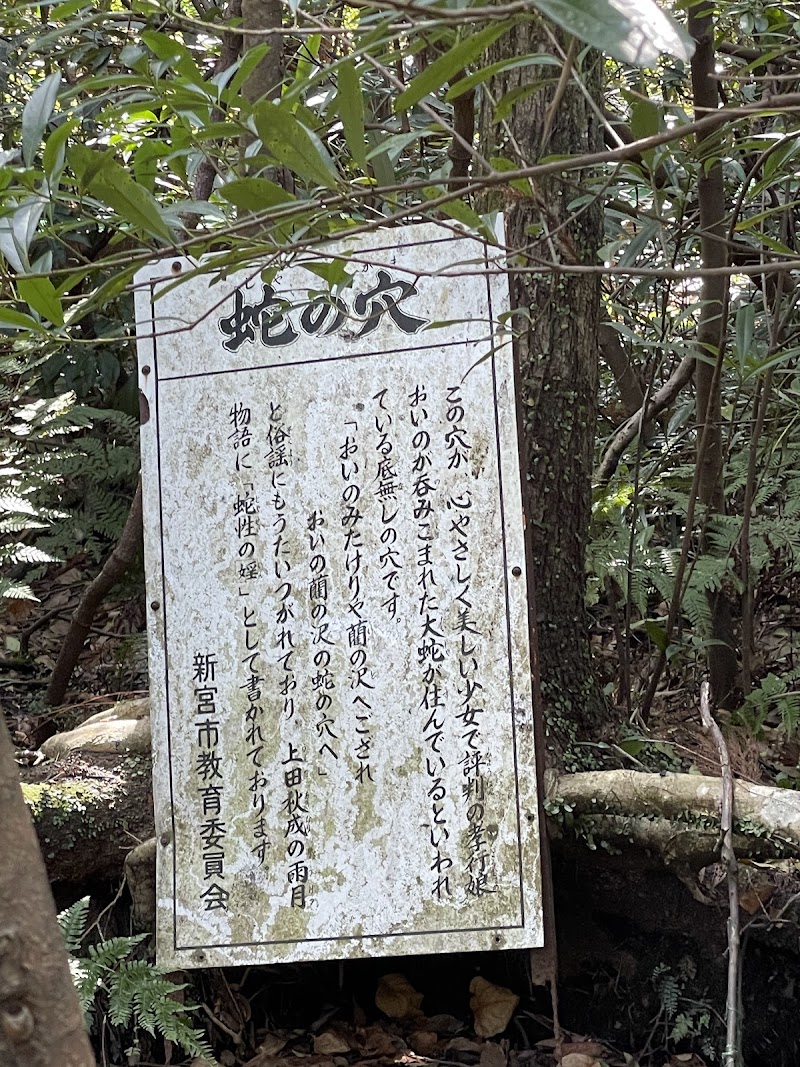 蛇の穴
この穴が、心やさしく美しい少女で評判の孝行娘
おいのが呑みこまれた大蛇が住んでいるといわれ
ている底無しの穴です。
「おいのみたけりや藺の沢へござれ
おいの藺の沢の蛇の穴へ」
と俗謡にもうたいつがれており、上田秋成の雨月
物語に「蛇性の婬」として書かれております。
新宮市教育委員会